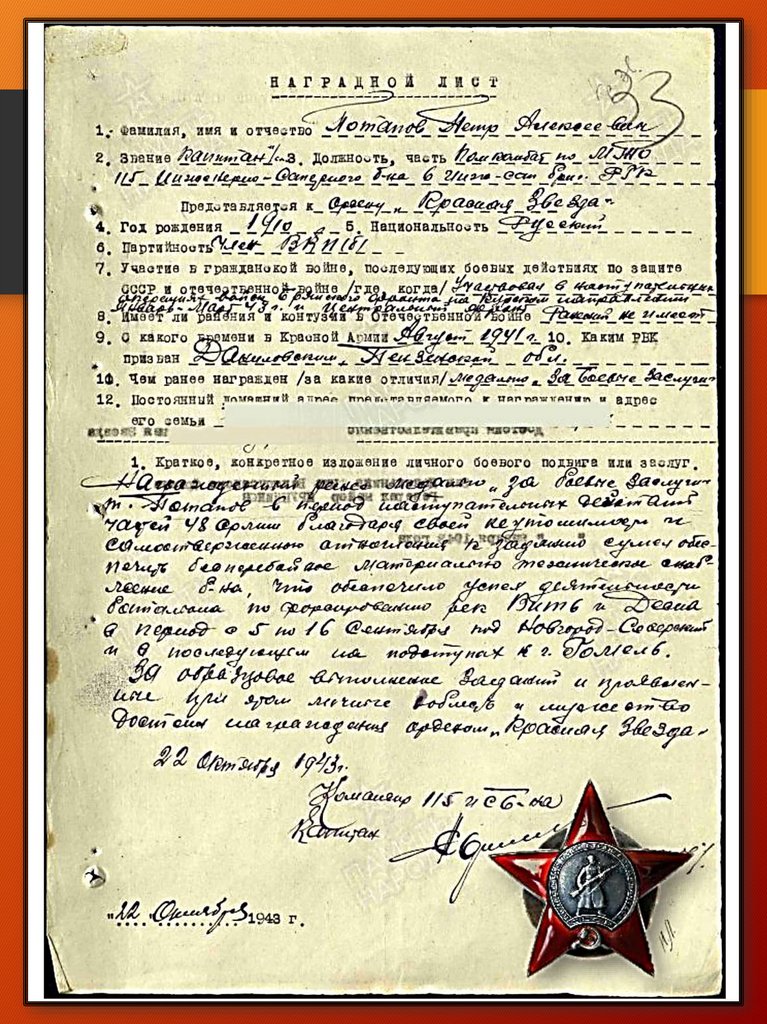 33
НАГРАДНОЙ ЛИСТ
1. Фамилия, имя и отчество Потапов Петр Алексеевич
2. Звание Капитан 3. Должность, часть Помкомбат по МТО
115 Инженерно-Саперного б-на 6 Инж-сап бриг. РГК
Представляется к ордену "Красная Звезда"
4. Год рождения 1910 5. Национальность Русский
6. Партийность Член ВКП(б)
7. Участие в гражданской войне, последующих боевых действиях по защите
СССР и отечественной войне /где, когда/ Участвовал в наступательных
операциях войск Брянского фронта на Курском направлении
Январь-Март 43 г. и Центральный фронт
8. Имеет ли ранения и контузии в Отечественной войне Ранений не имеет
9. С какого времени в Красной Армии Август 1941 г. 10. Каким РВК
призван Даниловским, Пензенской обл.
10. Чем ранее награжден /за какие отличия/ медалью "За Боевые Заслуги"
12. Постоянный домашний адрес представляемого к награждению и адрес
его семьи
1. Краткое, конкретное изложение личного боевого подвига или заслуг.
Награжденный ранее медалью "За боевые Заслуги"
т. Потапов в период наступательных действий
частей 48 армии благодаря своей неутомимости и
самоотверженного отношения к заданию сумел обес-
печить бесперебойное материально техническое снаб-
жение б-на, что обеспечило успех деятельности
батальона по форсированию рек Вить и Десна
в период с 5 по 16 Сентября под Новгород-Северский
и в последующем на подступах к г. Гомель.
За образцовое выполнение заданий и проявлен-
ные при этом личные доблесть и мужество
достоин награждения орденом "Красная Звезда"
22 Октября 1943 г.
Командир 115 ИСБ-на
Капитан
"22" Октября 1943 г.